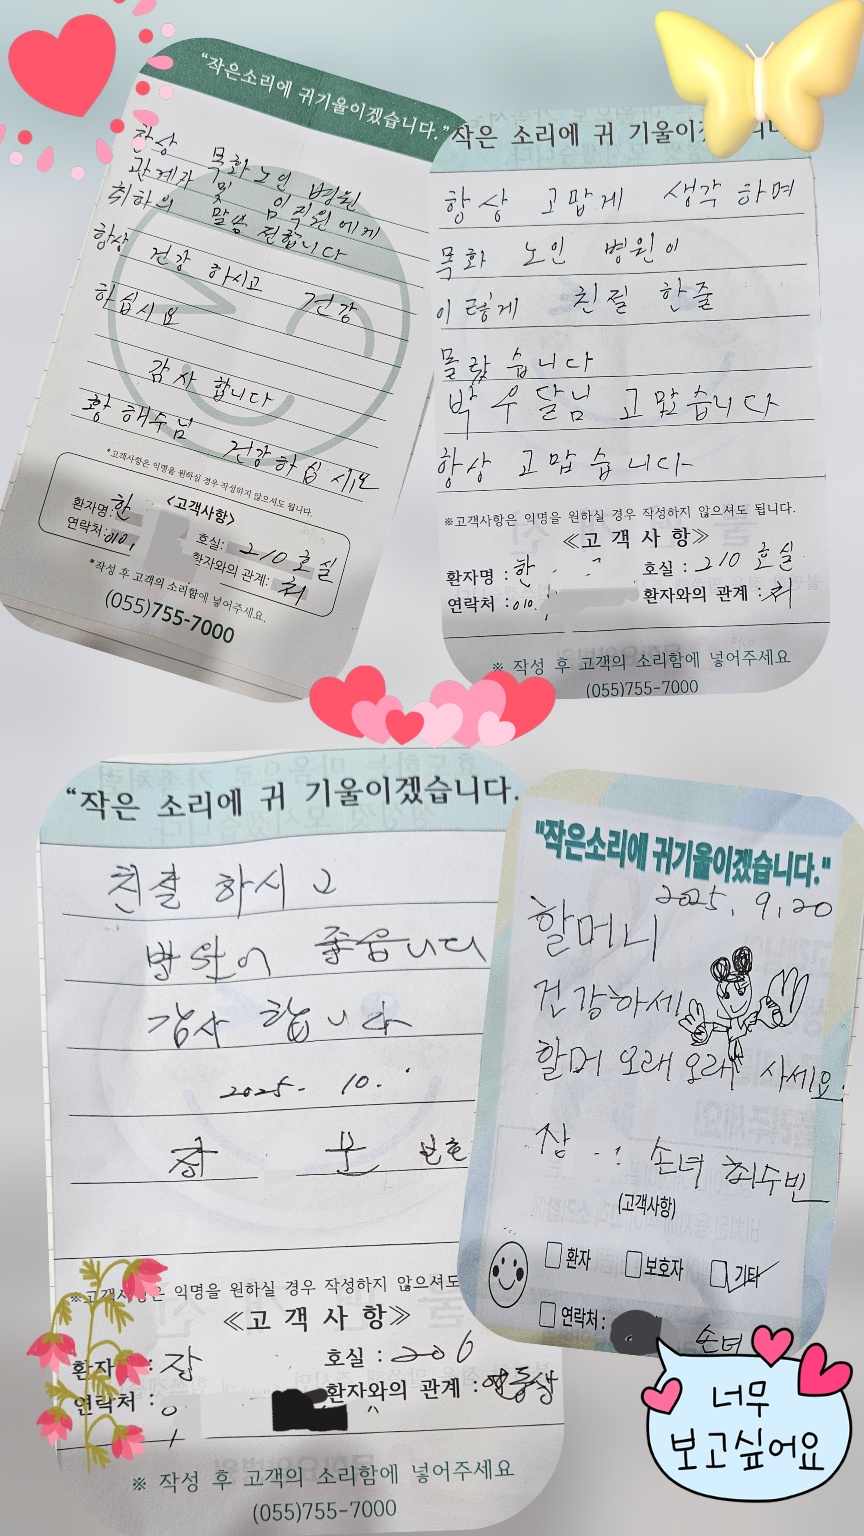 "작은소리에 귀기울이겠습니다."
항상 목화노인 병원
관계자 및 임직원에게
취하의 말씀 전합니다
항상 건강 하시고 건강
하십시요
감사 합니다
황해수님 건강하십시요
*고객사항은 익명을 원하실 경우 작성하지 않으셔도 됩니다.
<고객사항>
환자명: 한
호실: 210호실
연락처: 010,
환자와의 관계: 처
*작성 후 고객의 소리함에 넣어주세요.
(055)755-7000
작은 소리에 귀 기울이겠
항상 고맙게 생각 하며
목화 노인 병원이
이렇게 친절 한줄
몰랐 습니다
박우달님 고맜습니다
항상 고맙습니다
※고객사항은 익명을 원하실 경우 작성하지 않으셔도 됩니다.
≪고객사항≫
환자명 : 한
호실 : 210호실
연락처 : 010.
환자와의 관계 : 처
※ 작성 후 고객의 소리함에 넣어주세요
(055)755-7000
"작은 소리에 귀 기울이겠습니다.
친절 하시고
병원이 좋읍니다
감사 합니다
2025. 10.
장 문
※고객사항은 익명을 원하실 경우 작성하지 않으셔도
≪고객사항≫
환자 : 장
호실 : 206
연락처 : 0
환자와의 관계 :
※ 작성 후 고객의 소리함에 넣어주세요
(055)755-7000
"작은소리에 귀기울이겠습니다."
2025. 9. 20
할머니
건강하세
할머 오래 오래 사세요.
장 손녀 최수빈
(고객사항)
환자 보호자 기타
연락처: 손녀
너무
보고싶어요